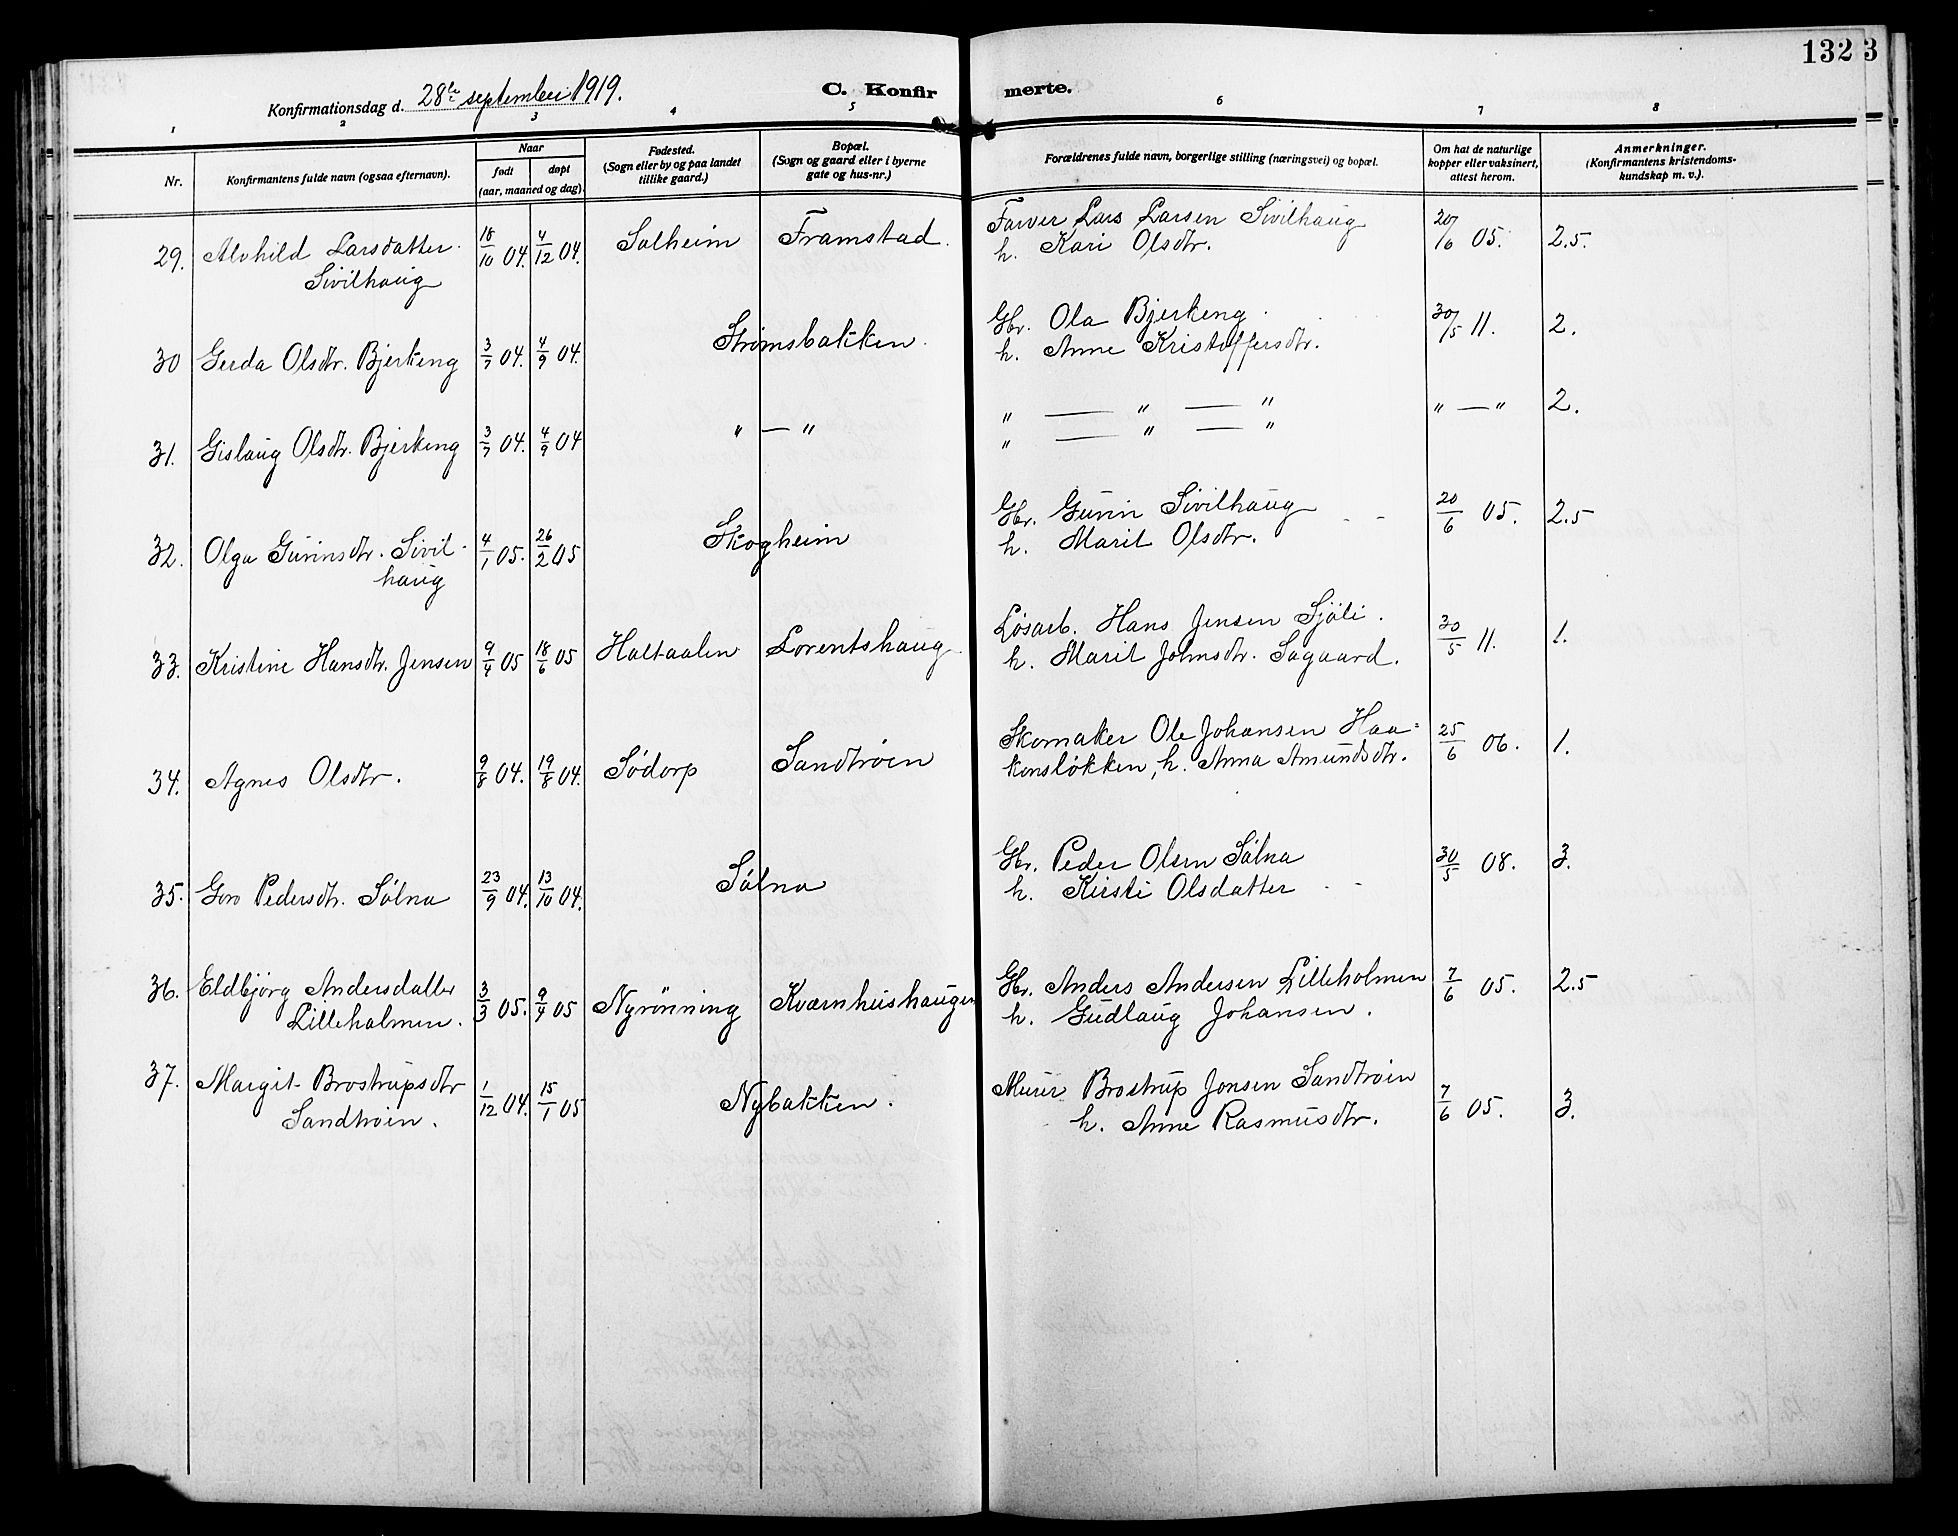 132 3
Konfirmationsdag d. 28de september 1919.
C. Konfirmerte.
1 2 3 4 5 6 7 8
Nr.
Konfirmantens fulde navn (ogsaa efternavn).
Naar
født døpt
(aar, maaned og dag).
Fødested.
(Sogn eller by og paa landet
tillike gaard.)
Bopæl.
(Sogn og gaard eller i byerne
gate og hus-nr.)
Forældrenes fulde navn, borgerlige stilling (næringsvei) og bopæl.
Om hat de naturlige
kopper eller vaksinert,
attest herom.
Anmerkninger.
(Konfirmantens kristendoms-
kundskap m. v.).
29. Alvhild Larsdatter 18/10 04. 4/12 04. Solheim Framstad. Farver Lars Larsen Sivilhaug 20/6 05. 2.5.
Sivilhaug h. Kari Olsdtr.
30 Gerda Olsdtr. Bjerkeng 3/7 04. 4/9 04. Strömsbakken. Gbr. Ola Bjerkeng. 30/5 11. 2.
h. Anne Kristoffersdtr.
31. Gislaug Olsdtr. Bjerkeng 3/7 04. 4/9 04 " — " " — " — " " — " 2.
" — " — "
32. Olga Gurinsdtr. Sivil- 4/1 05. 26/2 05 Skogheim Gbr. Gurin Sivilhaug 20/6 05. 2.5
haug h. Marit Olsdtr.
33. Kristine Hansdtr. Jensen 9/4 05 18/6 05 Haltaalen Lorentshaug Løsarb. Hans Jensen Sjöli. 30/5 11. 1.
h. Marit Johnsdtr. Sagaard.
34. Agnes Olsdtr. 9/8 04. 19/8 04. Södorp Sandtrøen Skomaker Ole Johansen Haa= 25/6 06. 1.
konsløkken, h. Anna Amundsdtr.
35. Goro Pedersdtr. Sölna 23/9 04. 13/10 04. Sölna Gbr. Peder Olsen Sölna 30/5 08. 3.
h. Kirsti Olsdatter
36. Eldbjörg Andersdatter 3/3 05. 9/4 05 Nyrönning Kværnhushaugen Gbr. Anders Andersen Lilleholmen 7/6 05. 2.5
Lilleholmen. h. Gudlaug Johansen.
37. Margit Brostrupsdtr 1/12 04. 15/1 05 Nybakken. Murer Brostrup Jonsen Sandtrøen 7/6 05. 3.
Sandtrøen. h. Anne Rasmusdtr.